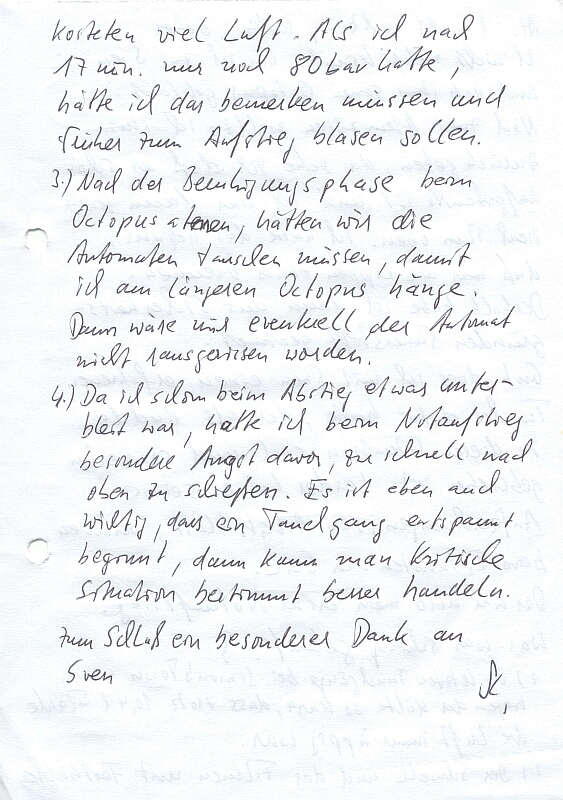 kosteten viel Luft. Als ich nach
17 min. nur noch 80 bar hatte,
hätte ich das bemerken müssen und
früher zum Aufstieg blasen sollen.
3.) Nach der Beruhigungsphase beim
Octopus atmen, hätten wir die
Automaten tauschen müssen, damit
ich am längeren Octopus hänge.
Dann wäre mir eventuell der Automat
nicht rausgerissen worden.
4.) Da ich schon beim Abstieg etwas unter-
bleit war, hatte ich beim Notaufstieg
besondere Angst davor, zu schnell nach
oben zu schießen. Es ist eben auch
wichtig, dass ein Tauchgang entspannt
beginnt, dann kann man kritische
Situation bestimmt besser handeln.
Zum Schluß ein besonderer Dank an
Sven